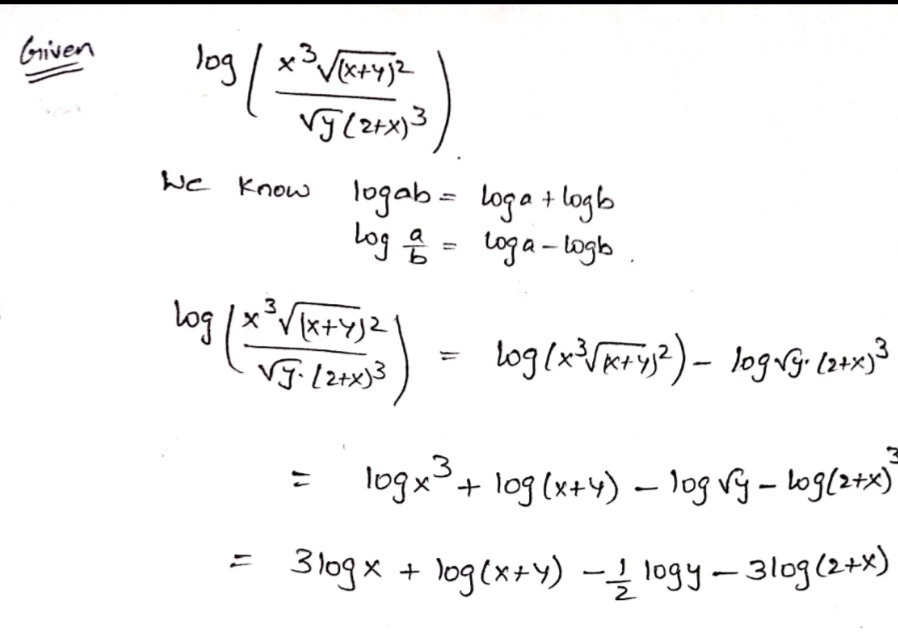 Given log( x³√(x+y)² / √y (2+x)³ )
We Know logab = loga + logb
Log a/b = loga - logb.
log( x³√(x+y)² / √y·(2+x)³ ) = log(x³√(x+y)²) - log√y·(2+x)³
= logx³ + log(x+y) - log√y - log(2+x)³
= 3logx + log(x+y) - 1/2 logy - 3log(2+x)